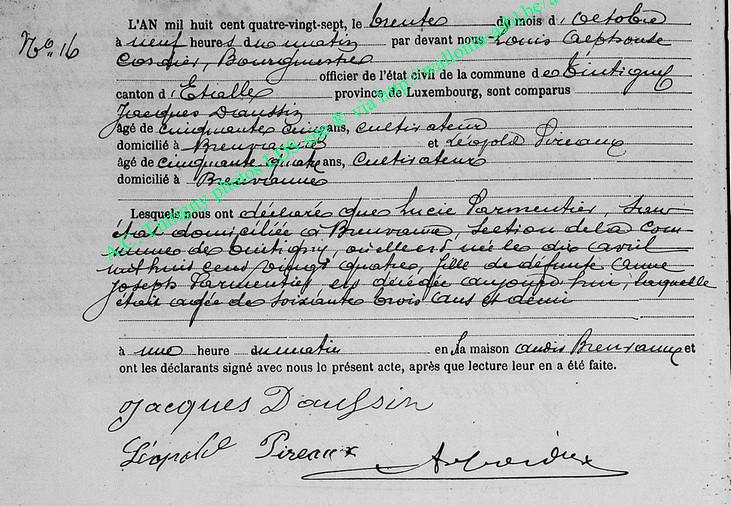 No. 16
L'AN mil huit cent quatre-vingt-sept, le trente du mois d'octobre
à neuf heures du matin par devant nous Louis Alphonse
Cordier, Bourgmestre
officier de l'état civil de la commune de Tintigny
canton d'Etalle province de Luxembourg, sont comparus
Jacques Daussin
âgé de cinquante cinq ans, cultivateur
domicilié à Breuvanne et Léopold Pireaux
âgé de cinquante quatre ans, cultivateur
domicilié à Breuvanne
Lesquels nous ont déclaré que Lucie Parmentier, sans
état domiciliée à Breuvanne, section de la com-
mune de Tintigny, où elle est née le dix avril
mil huit cent vingt quatre, fille de défunte Anne
Joseph Parmentier, est décédée aujourd'hui, laquelle
était agée de soixante trois ans et demi
à une heure du matin en sa maison audit Breuvanne et
ont les déclarants signé avec nous le présent acte, après que lecture leur en a été faite.
Jacques Daussin
Léopold Pireaux
A.C. Thibany photos LDS via http://wallonia-asbl.be/